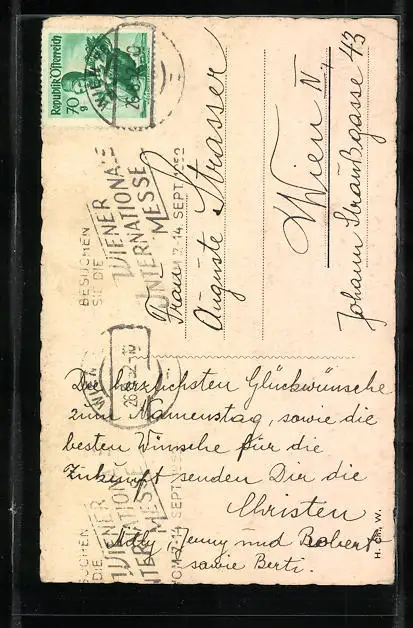 Republik Österreich
70
g
WIEN
BESUCHEN
SIE DIE
WIENER
INTERNATIONALE
MESSE
VOM 7.-14. SEPT. 1952
Frau
Auguste Strasser
Wien IV,
Johann Straußgasse 43
WIEN
BESUCHEN
SIE DIE
WIENER
INTERNATIONALE
MESSE
VOM 7.-14. SEPT. 1952
Die herzlichsten Glückwünsche
zum Namenstag, sowie die
besten Wünsche für die
Zukunft senden Dir die
Christen
Adly, Jenny und Robert
sowie Berti.
H. Chr. W.